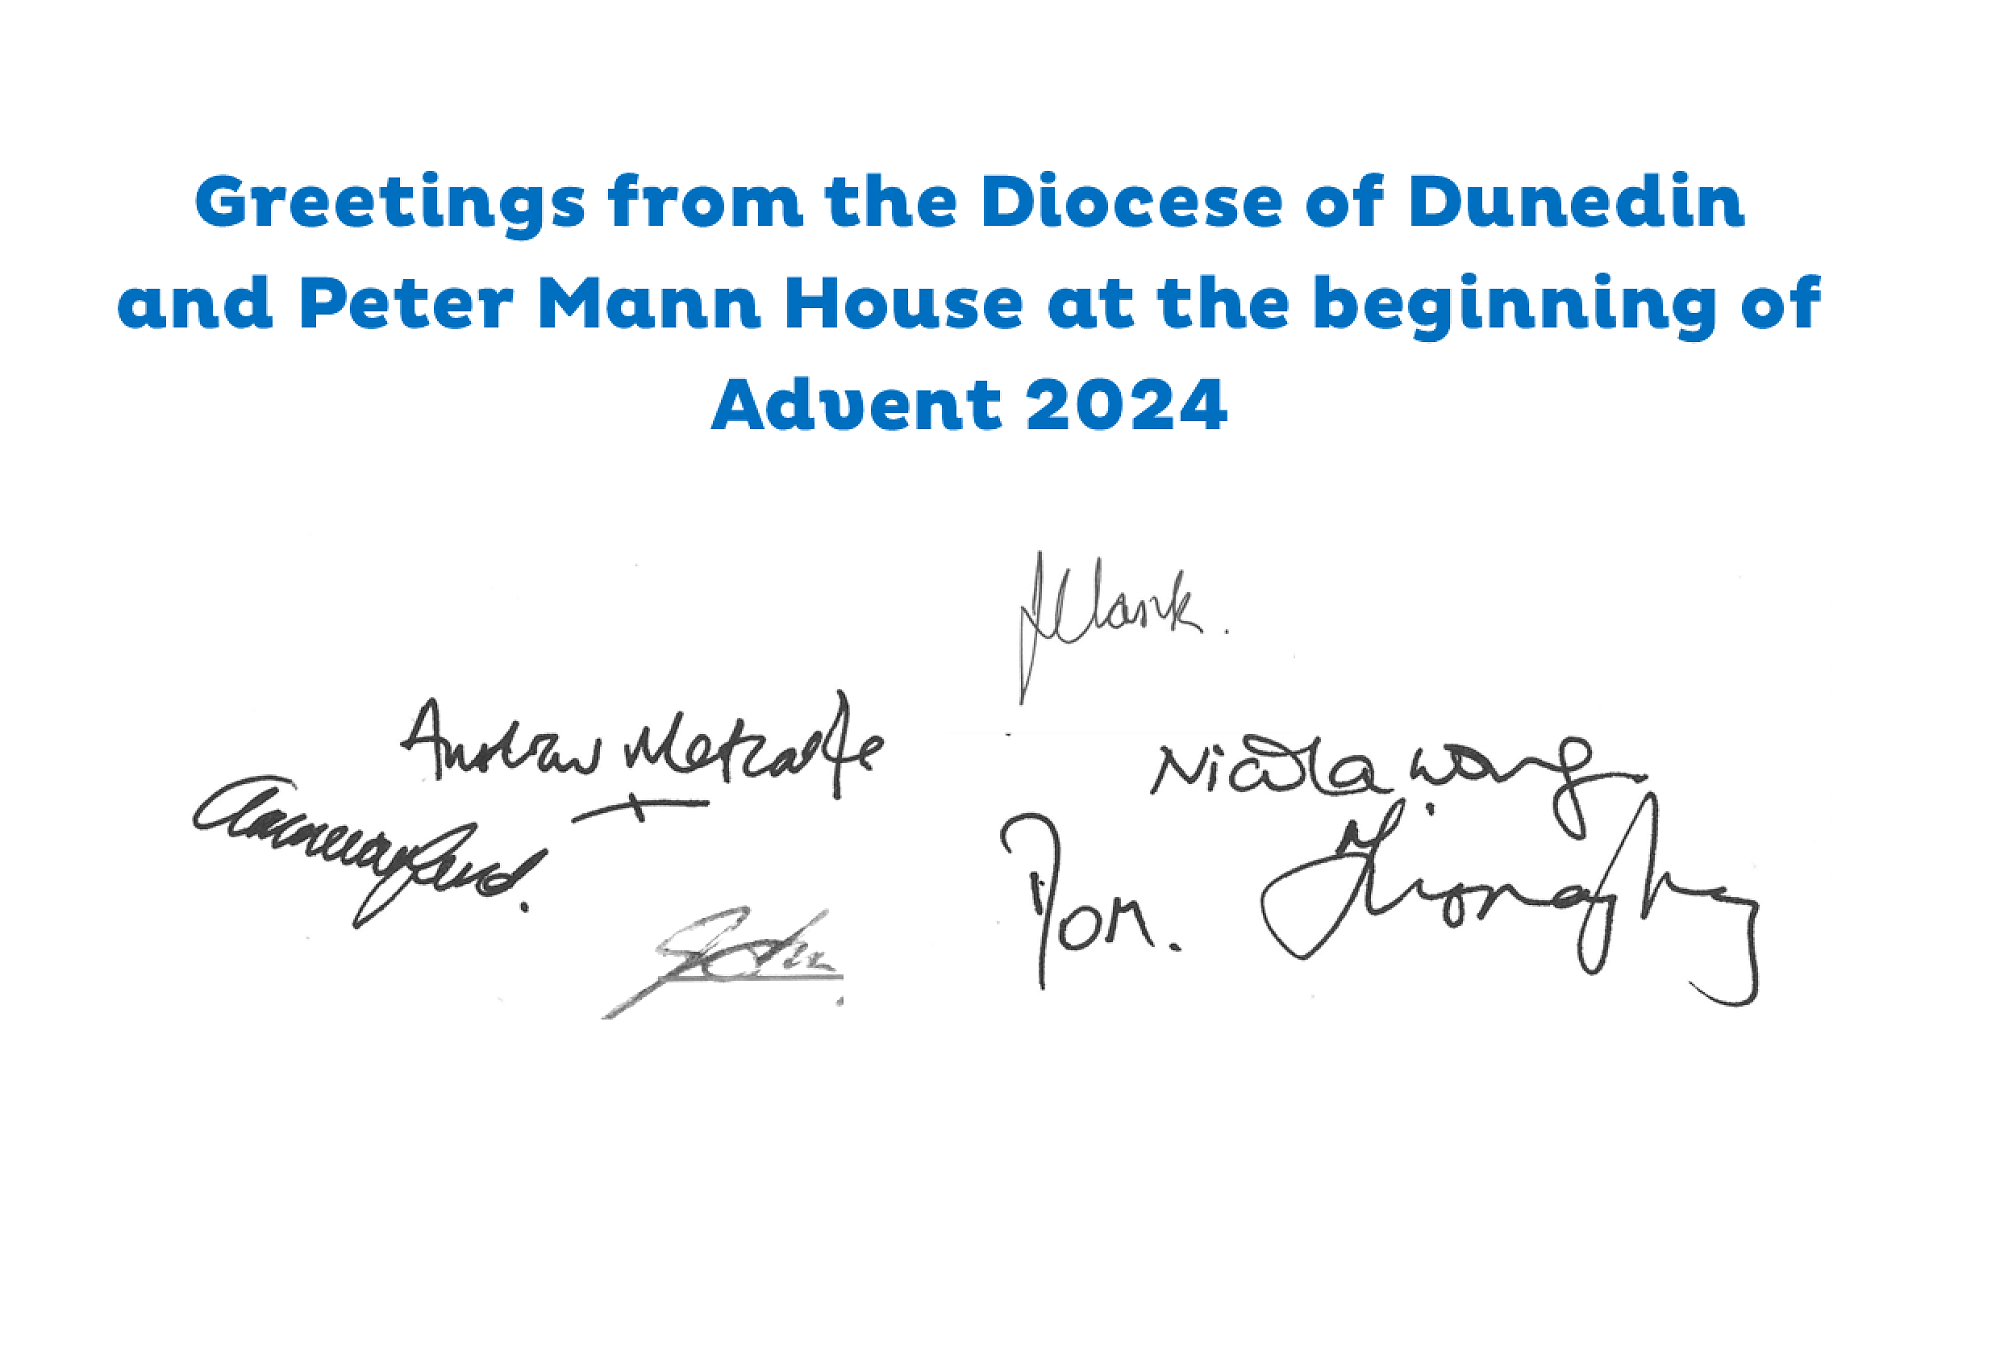 Greetings from the Diocese of Dunedin
and Peter Mann House at the beginning of
Advent 2024
Andrew Metcalfe
Nicola Wong